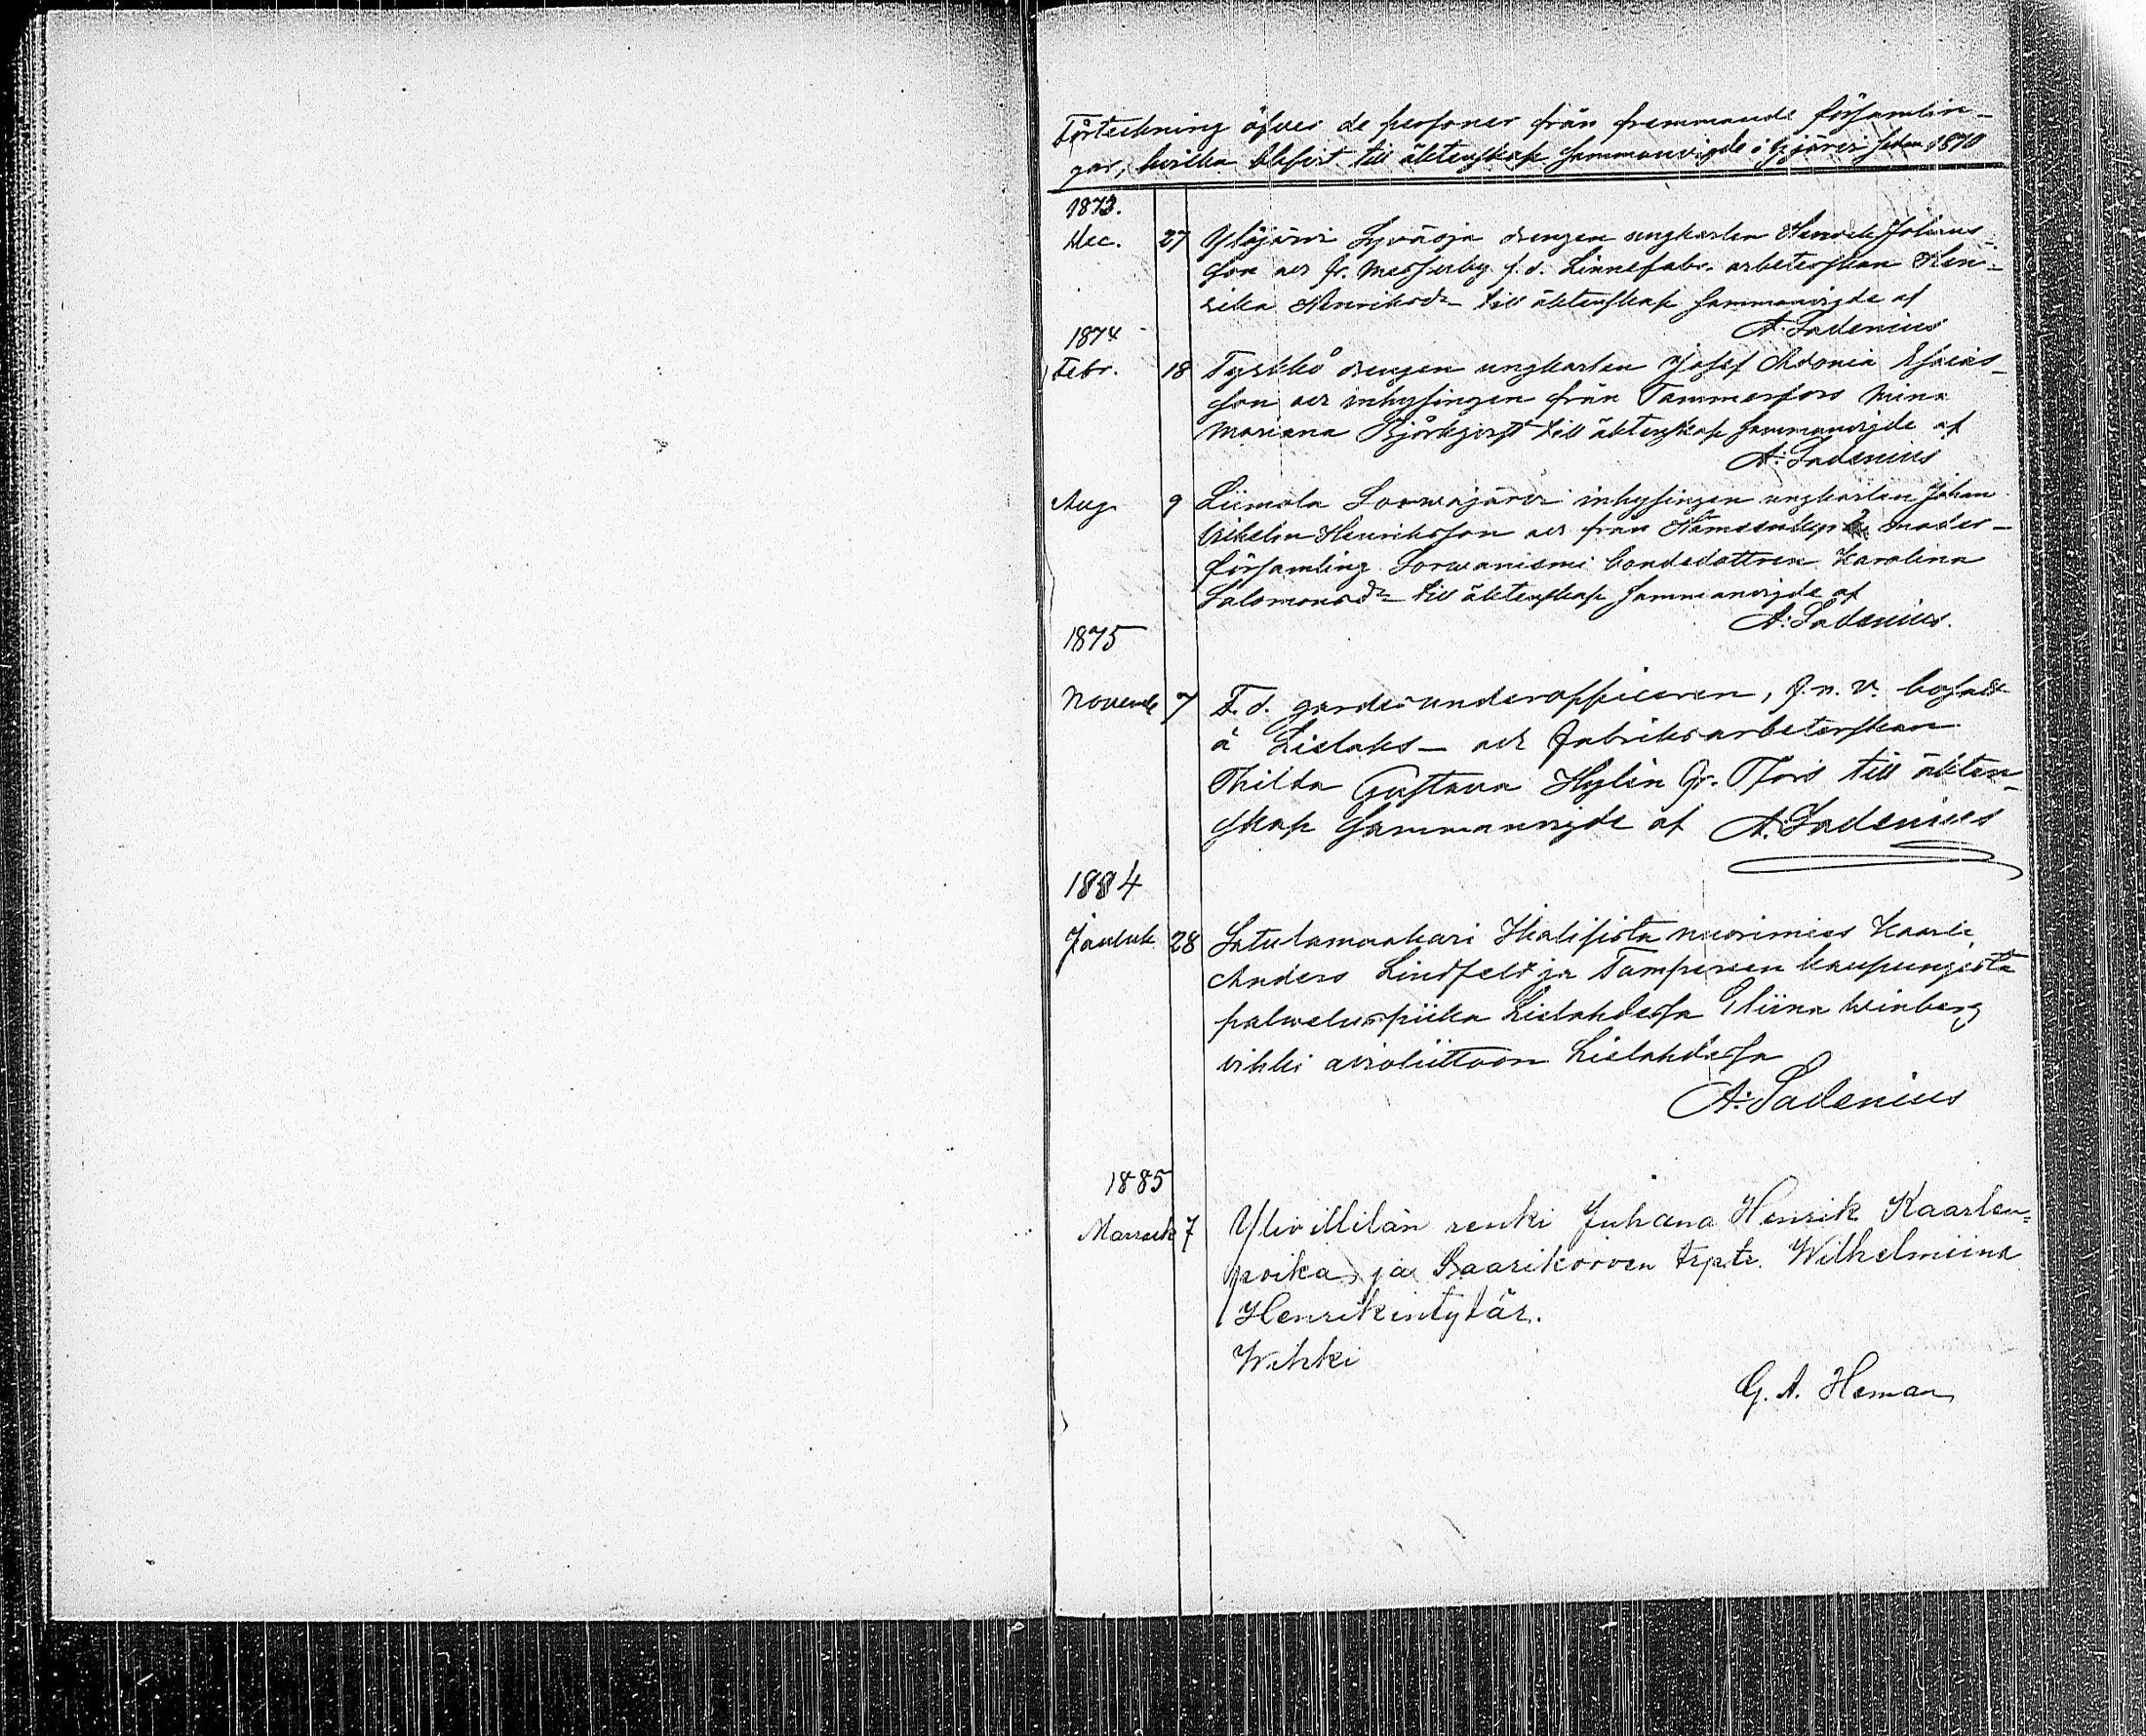 Förteckning öfver de personer från fremmande församlin-
gar, hvilka blifvit till äktenskap sammanvigde i Ylöjärvi sedan 1870
1873.
Dec. 27 Ylöjärvi Syväoja drengen ungkarlen Henrik Johans-
son och fr. Messuby f.d. Linnefabr. arbeterskan Hen-
rika Henriksdr till äktenskap sammanvigde af
A. Ladenius
1874
Febr. 18 Tyrkkö drengen ungkarlen Josef Adonia Esaias-
son och inhysingen från Tammerfors Mina
Mariana Björkqvist till äktenskap sammanvigde af
A. Ladenius
Aug. 9 Liimola inhysingen ungkarlen Johan
Vilhelm Henriksson och från moder-
församling bondedottren Karolina
Salomonsdr till äktenskap sammanvigde af
A. Ladenius.
1875
Novemb 7 F.d. gardesunderofficeren, f.n.v. bosatt
å Lielaks – och fabriksarbeterskan
Thilda Gustava Hylin fr. Tfors till äkten-
skap sammanvigde af A. Ladenius
1884
Jouluk 28 Satulamaakari Ikalisista nuorimies Kaarle
Anders Lindfelt ja Tampereen kaupungista
palveluspiika Lielahdessa Eliina Winberg
vihki avioliittoon Lielahdessa
A. Ladenius
1885
Marrask 7 Ylivillilän renki Juhana Henrik Kaarlen=
poika ja Saarikorven trpr. Wilhelmiina
Henrikintytär.
Wihki
G. A. Heman